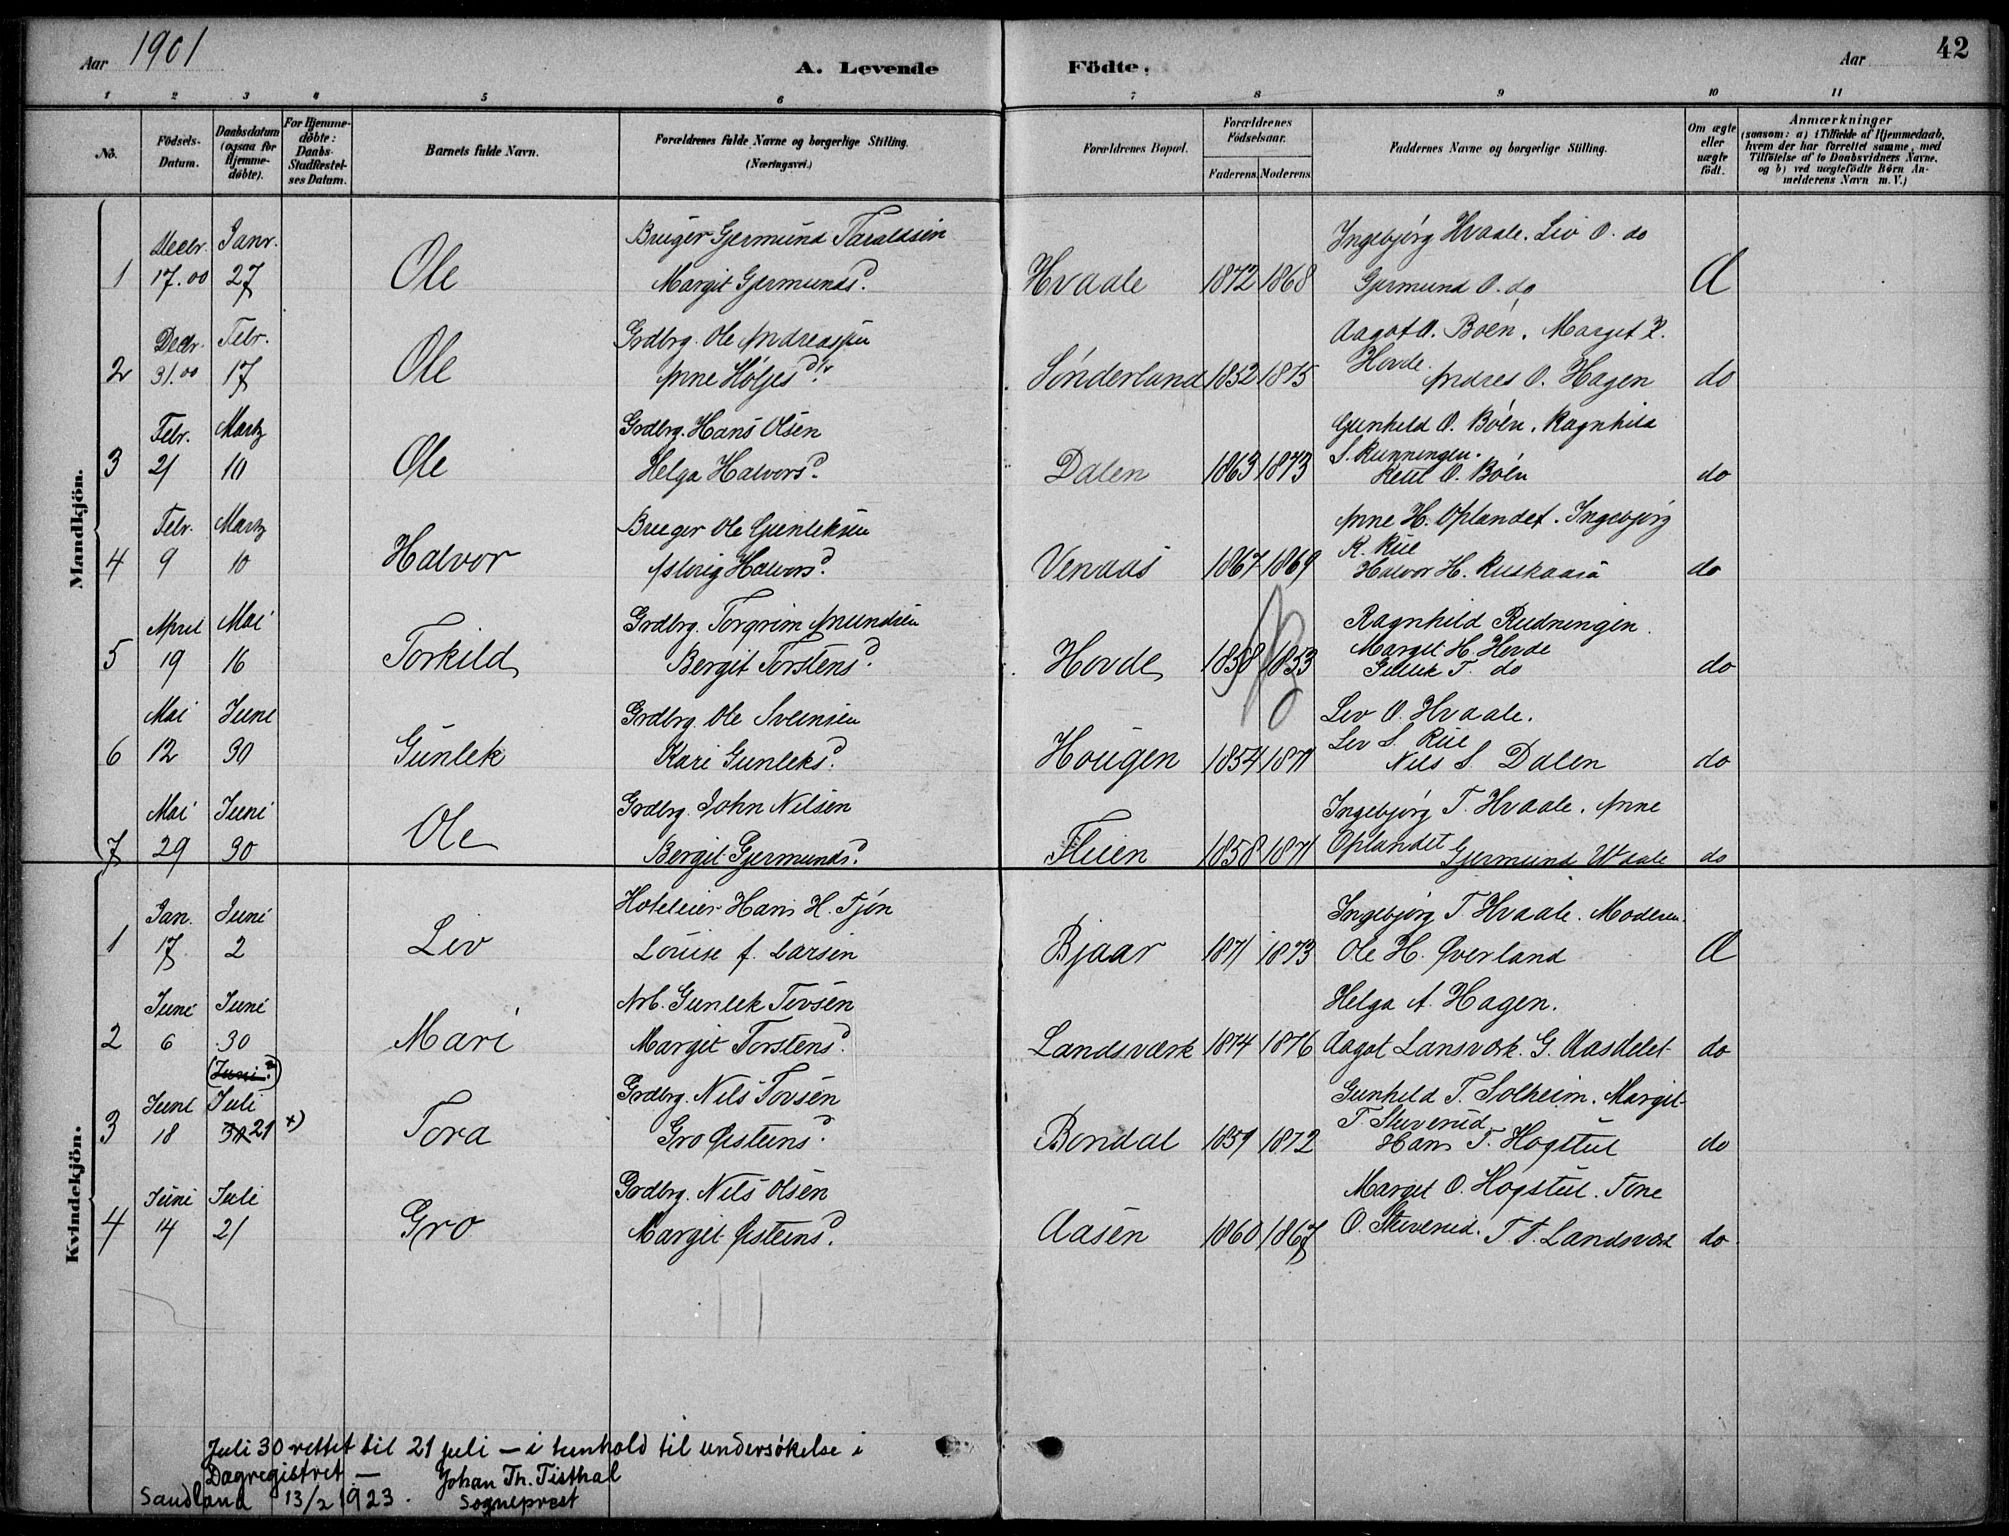 Aar 1901
A. Levende
Födte.
Aar
42
1 2 3 4 5 6 7 8 9 10 11
No.
Födsels-Datum.
Daabsdatum (ogsaa for Hjemme-döbte).
For Hjemme-döbte: Daabs-Stadfæstel-ses Datum.
Barnets fulde Navn.
Forældrenes fulde Navne og borgerlige Stilling.
(Næringsvei.)
Forældrenes Bopæl.
Forældrenes Födselsaar.
Faderens. Moderens.
Faddernes Navne og borgerlige Stilling.
Om ægte eller uægte födt.
Anmærkninger
(saasom: a) i Tilfælde af Hjemmedaab,
hvem der har forrettet samme, med
Tilföielse af to Daabsvidners Navne,
og b) ved uægtefödte Börn An-
melderens Navn m. V.)
Mandkjön.
Decbr. Janr. Bruger Gjermund Taraldsen Ingebjørg Hvaale. Liv O. do
1 17.00 27 Ole Margit Gjermundsd. Hvaale 1872 1868 Gjermund O. do Æ
Decbr. Febr. Grdbrg. Ole Andreassen Aagot O. Böen. Marget
2 31.00 17 Ole Anne Höljesd. Sönderland 1852 1875 Hovde. Andres O. Hagen do
Febr. Martz Grdbrg. Hans Olsen Gunhild O. Böen. Ragnhild
3 21 10 Ole Helga Halvorsd. Dalen 1863 1873 S. Runningen. Ketil O. Böen do
Febr. Martz Bruger Ole Gunleksen Anne H. Oplandet. Ingebjörg
4 9 10 Halvor Aslaug Halvorsd. Venaas 1867 1869 K. Rue Halvor H. Ruskaasa do
April Mai Grdbrg. Torgrim Anundsen Ragnhild Rudningen.
5 19 16 Torkild Bergit Torstensd. Hovde 1858 1853 Marget H. Hovde Gulleik T. do do
Mai Juni Grdbrg. Ole Svensen Liv O. Hvaale.
6 12 30 Gunlek Kari Gunleksd. Hougen 1854 1871 Liv S. Rue Nils S. Dalen do
Mai Juni Grdbrg. John Nilsen Ingebjørg T. Hvaale. Anne
7 29 30 Ole Bergit Gjermundsd. Fluen 1858 1871 Oplandet Gjermund Hvaale do
Kvindekjön.
Jan. Juni Hoteleier Hans H. Tjön Ingebjørg T. Hvaale. Moderen.
1 17 2 Liv Louise f. Larsen Bjaar 1871 1873 Ole H. Øverland Æ
Juni Juni Arb. Gunlek Tovsen Helga A. Hagen.
2 6 30 Mari Margit Torstensd. Landsværk 1874 1876 Aagot Lansværk. G. Aasdelet do
(Juni?)
Juni Juli Grdbrg. Nils Tovsen Gunhild T. Solheim. Margit
3 18 30 21 x) Tora Gro Øisteinsd. Bondal 1859 1872 T. Stuverud Hans T. Högstul do
Juni Juli Grdbrg. Nils Olsen Marget O. Högstul. Tone
4 14 21 Gro Margit Øisteinsd. Aasen 1860 1867 O. Stuverud. T. T. Landsværk do
Juli 30 rettet til 21 juli — i henhold til undersökelse i
Dagregistret. —
Sandland 13/2 1923. Johan Th. Tisthal
Sogneprest